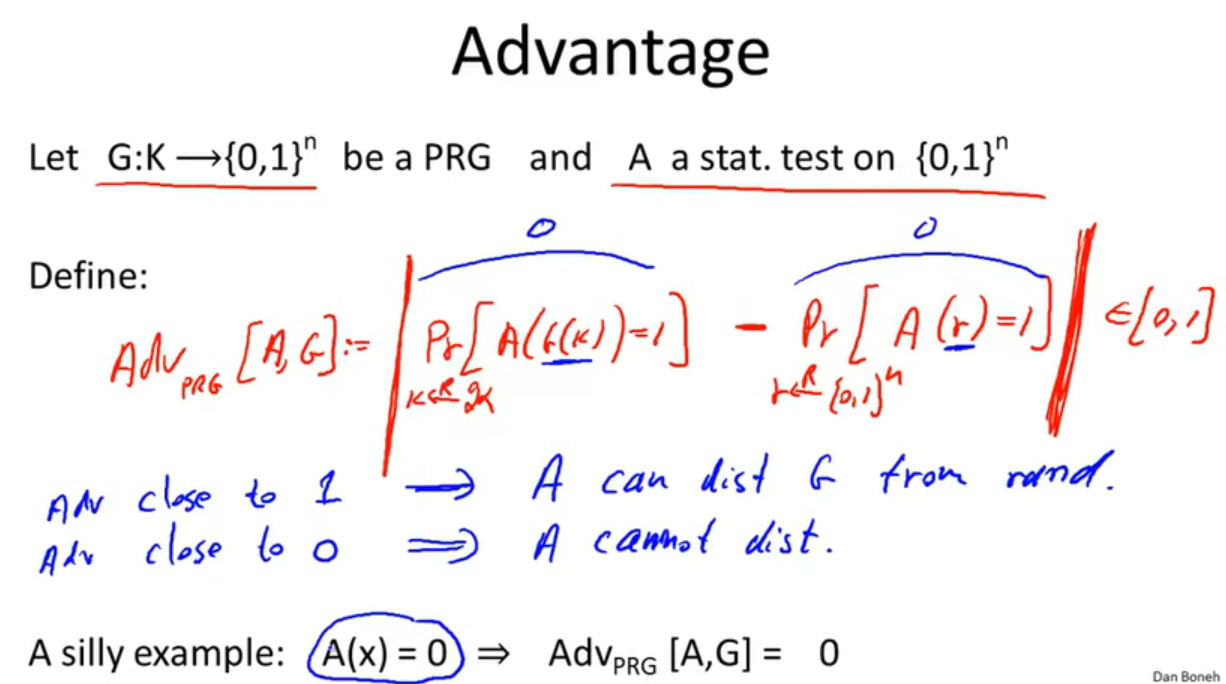 Advantage
Let G:K ⟶{0,1}ⁿ be a PRG and A a stat. test on {0,1}ⁿ
0 0
Define:
Adv_PRG [A,G] := | Pr[A(G(k))=1] - Pr[A(r)=1] | ∈[0,1]
k ←ᴿ K r ←ᴿ {0,1}ⁿ
Adv close to 1 ⟶ A can dist G from rand.
Adv close to 0 ⟹ A cannot dist.
A silly example: A(x) = 0 ⇒ Adv_PRG [A,G] = 0
Dan Boneh